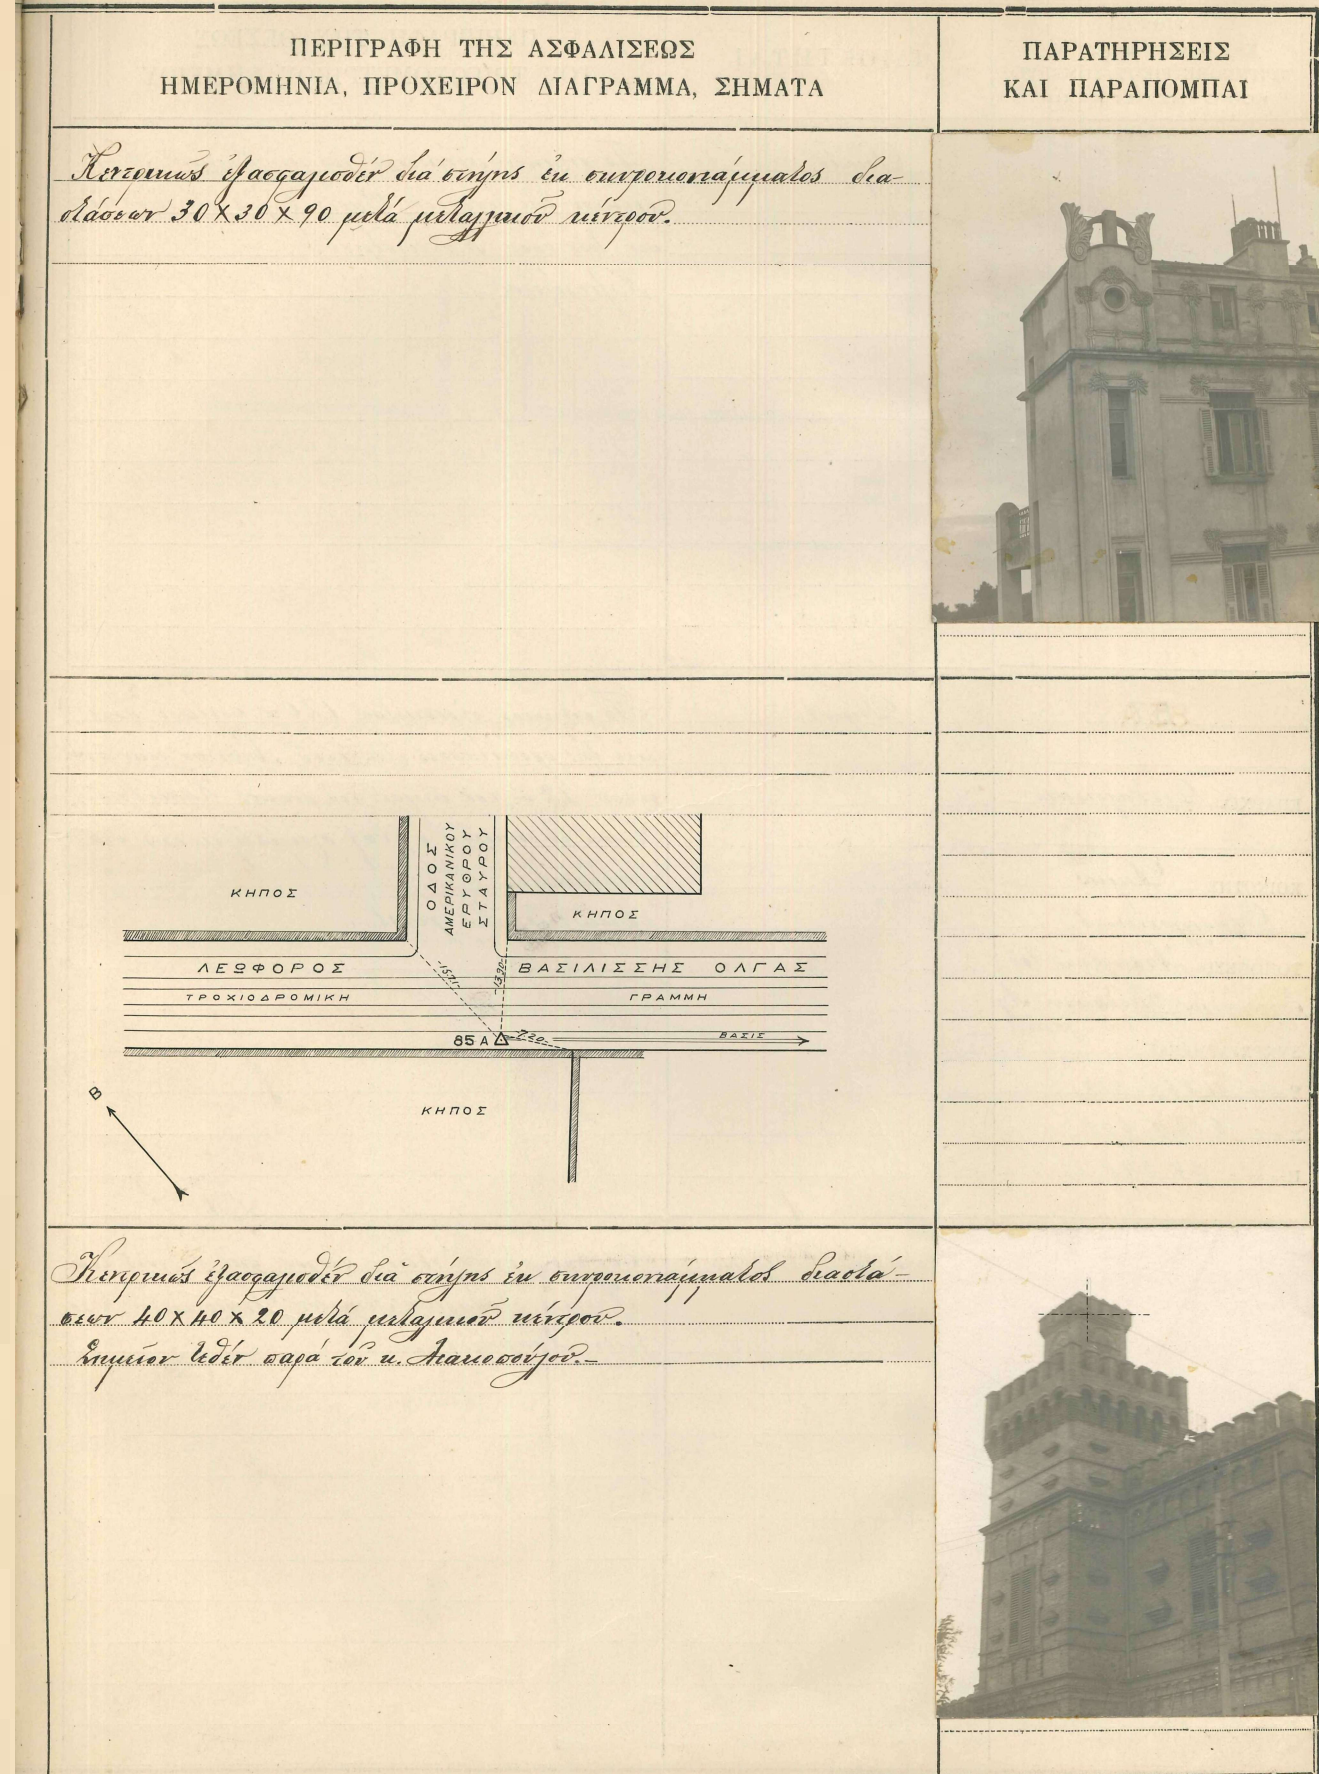 ΠΕΡΙΓΡΑΦΗ ΤΗΣ ΑΣΦΑΛΙΣΕΩΣ
ΗΜΕΡΟΜΗΝΙΑ, ΠΡΟΧΕΙΡΟΝ ΔΙΑΓΡΑΜΜΑ, ΣΗΜΑΤΑ
ΠΑΡΑΤΗΡΗΣΕΙΣ
ΚΑΙ ΠΑΡΑΠΟΜΠΑΙ
Κεντρικῶς ἐξασφαλισθέν διά στήλης ἐκ σκυροκονιάματος δια-
στάσεων 30 X 30 X 90 μετά μεταλλικοῦ κέντρου.
ΚΗΠΟΣ
ΟΔΟΣ
ΑΜΕΡΙΚΑΝΙΚΟΥ
ΕΡΥΘΡΟΥ
ΣΤΑΥΡΟΥ
ΚΗΠΟΣ
ΛΕΩΦΟΡΟΣ ΒΑΣΙΛΙΣΣΗΣ ΟΛΓΑΣ
ΤΡΟΧΙΟΔΡΟΜΙΚΗ ΓΡΑΜΜΗ
13.90
85 Α
7.20
ΒΑΣΙΣ
Β
ΚΗΠΟΣ
Κεντρικῶς ἐξασφαλισθέν διά στήλης ἐκ σκυροκονιάματος διαστά-
σεων 40 X 40 X 20 μετά μεταλικοῦ κέντρου.
Σημεῖον τεθέν παρά τοῦ κ.